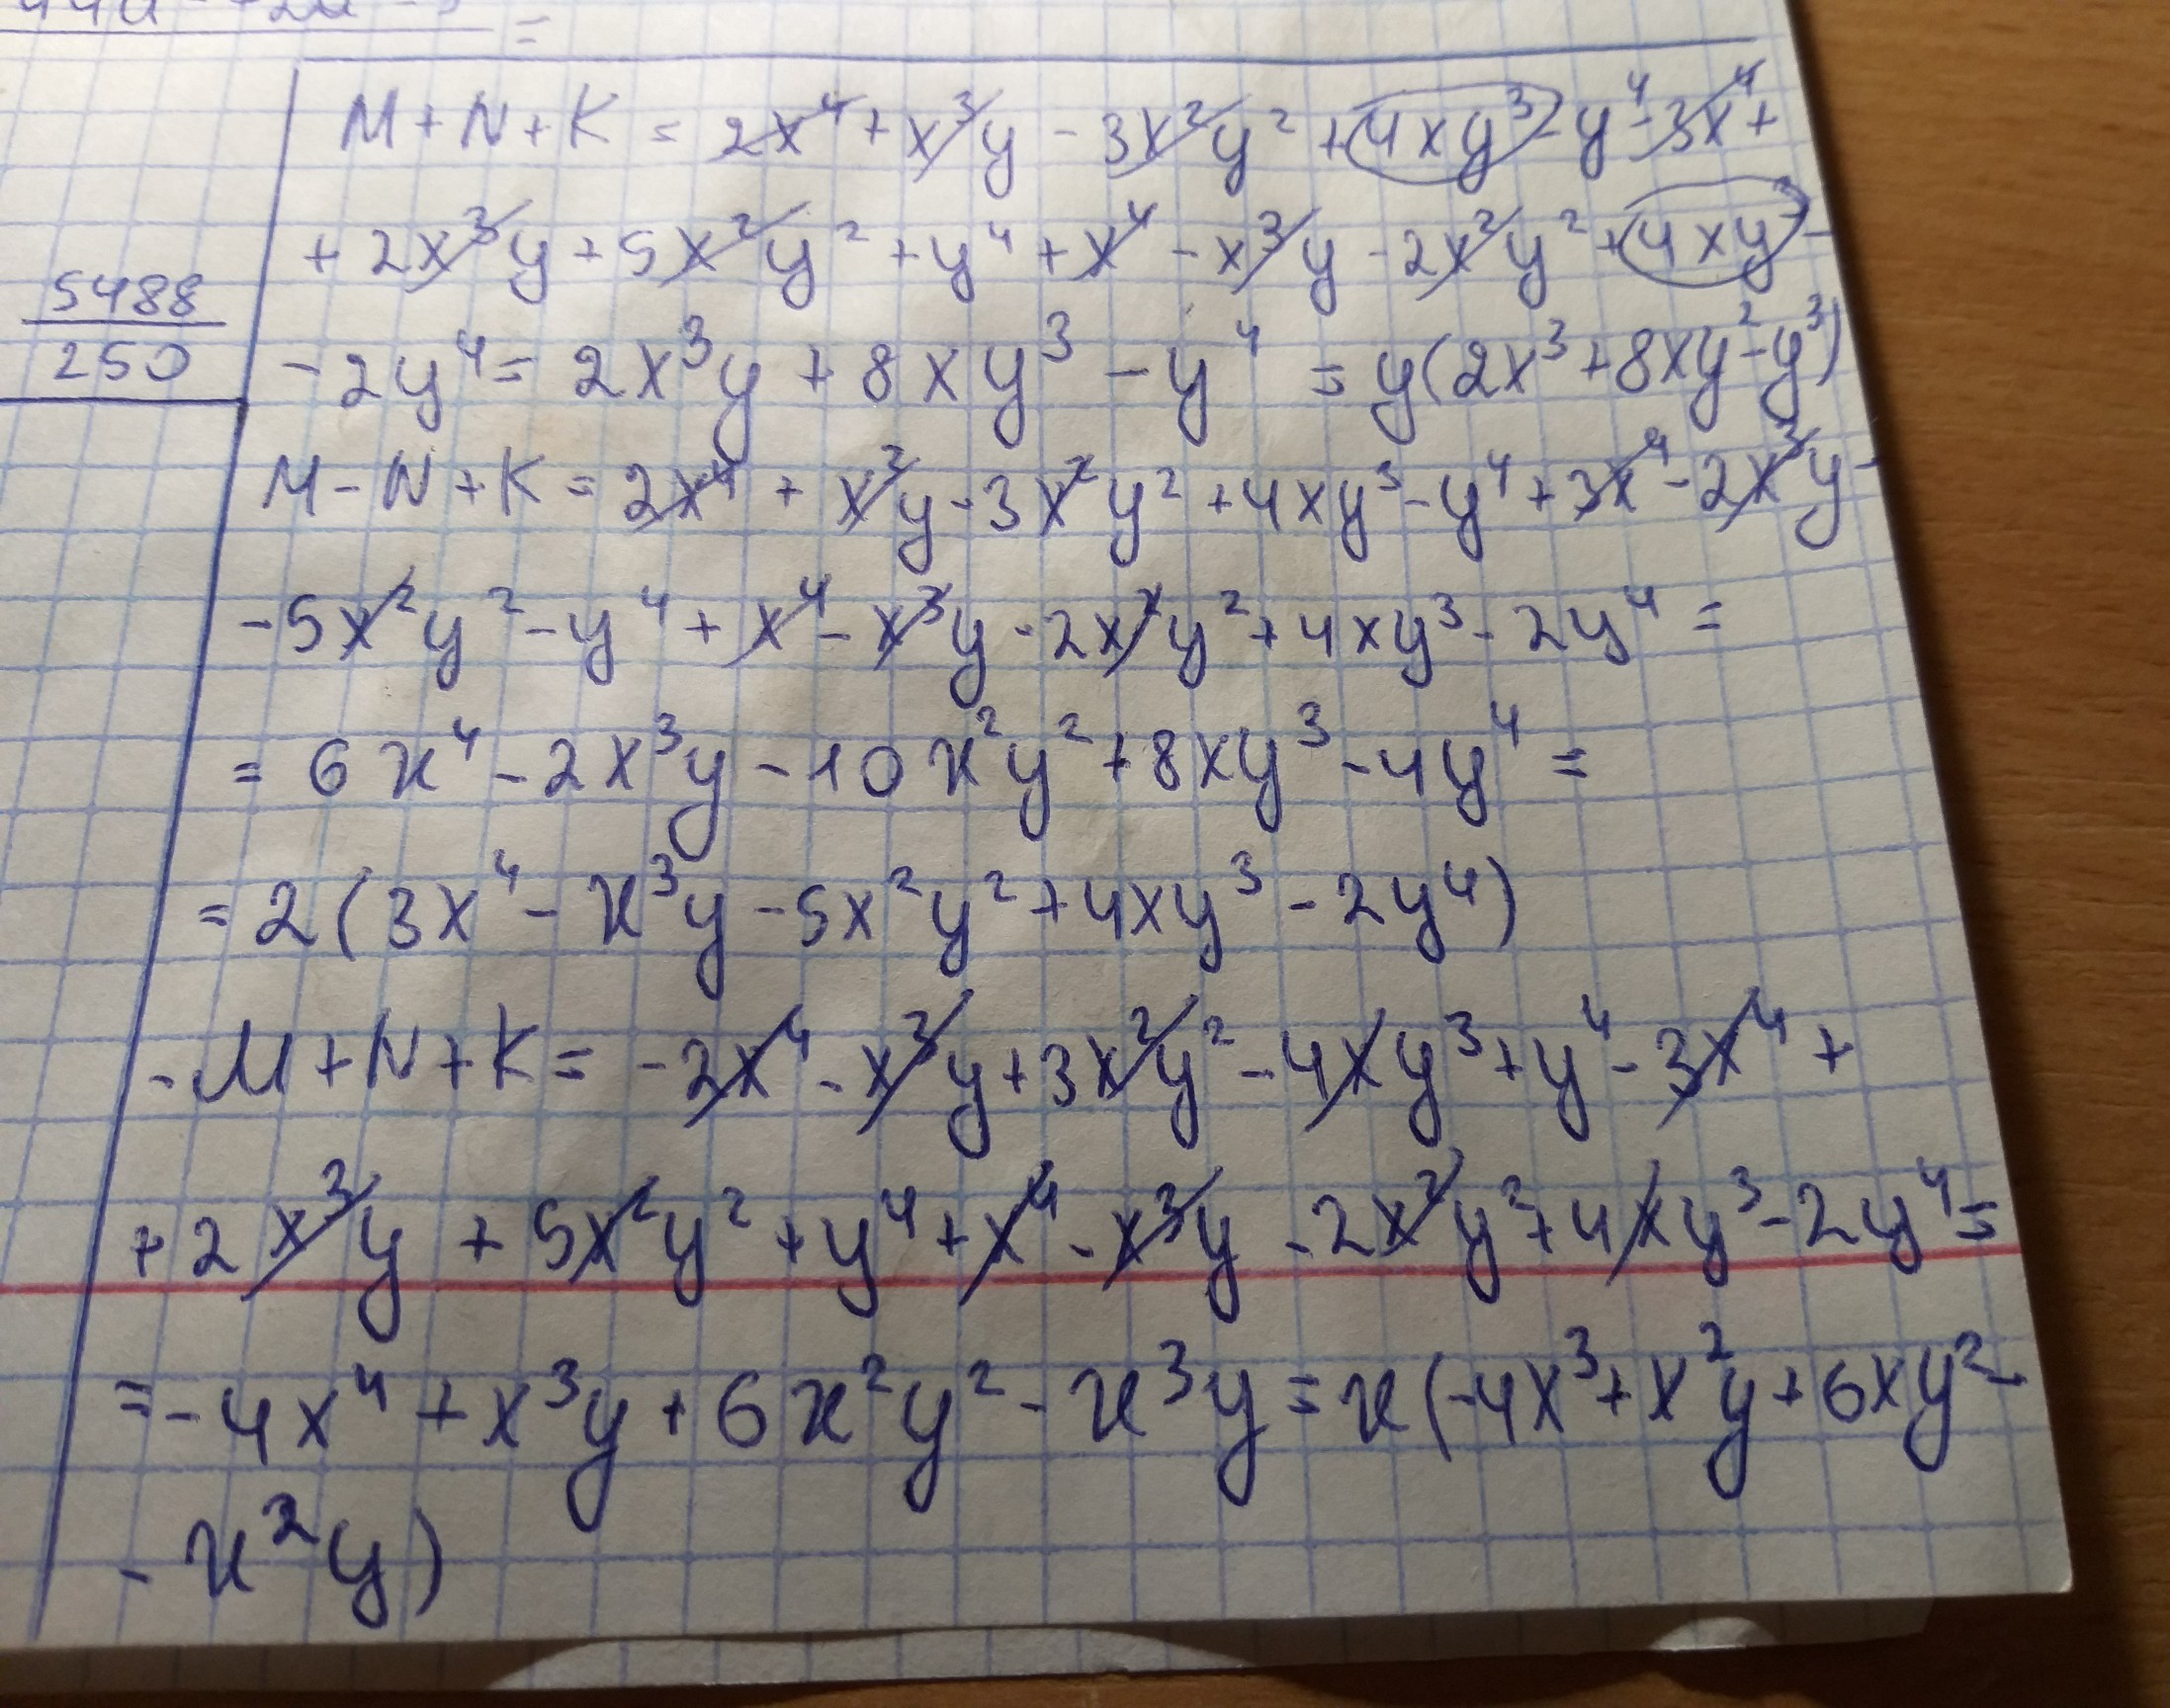 =
M+N+K = 2x⁴+x³y-3x²y²+4xy³-y⁴-3x⁴+
+2x³y+5x²y²+y⁴+x⁴-x³y-2x²y²+4xy³-
5488
250
-2y⁴= 2x³y+8xy³-y⁴ = y(2x³+8xy²-y³)
M-N+K=2x⁴+x²y-3x²y²+4xy³-y⁴+3x⁴-2x³y-
-5x²y²-y⁴+x⁴-x³y-2x²y²+4xy³-2y⁴=
= 6x⁴-2x³y-10x²y²+8xy³-4y⁴=
=2(3x⁴-x³y-5x²y²+4xy³-2y⁴)
-M+N+K= -2x⁴-x³y+3x²y²-4xy³+y⁴-3x⁴+
+2x³y+5x²y²+y⁴+x⁴-x³y-2x²y²+4xy³-2y⁴=
=-4x⁴+x³y+6x²y²-x³y=x(-4x³+x²y+6xy²-
-x²y)